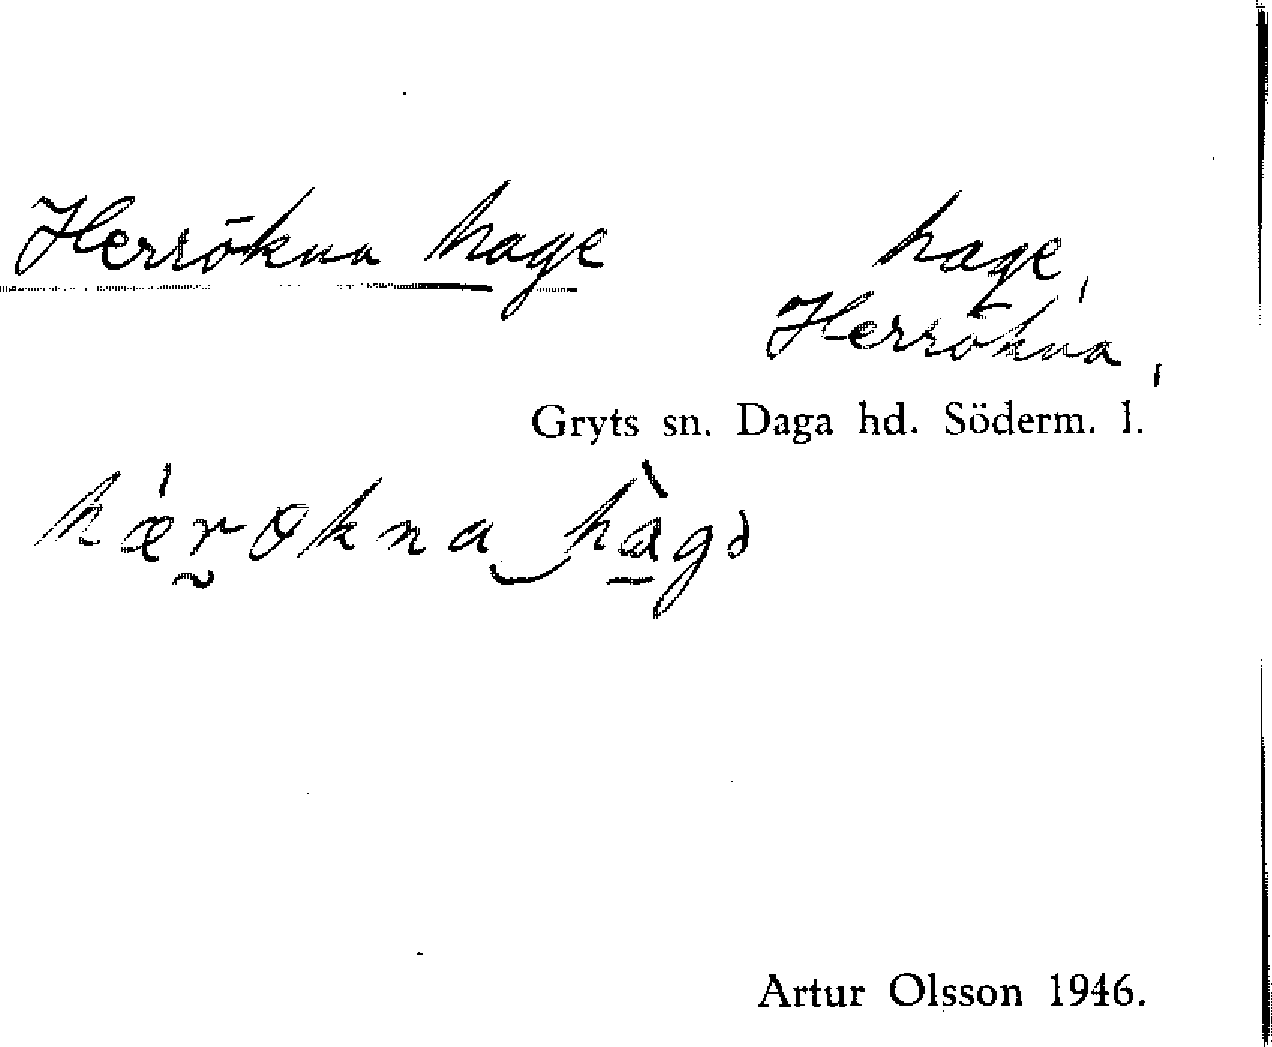 Herrökna hage
hage,
Herrökna,
Gryts sn. Daga hd. Söderm. l.
Artur Olsson 1946.